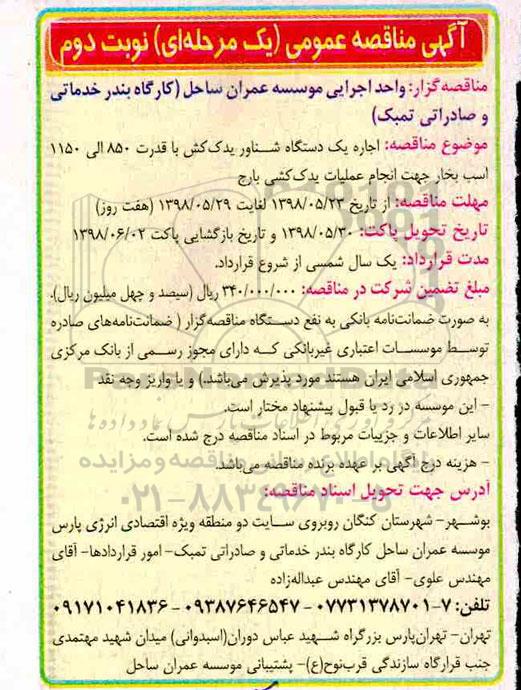 آگهی مناقصه عمومی (یک مرحله‌ای) نوبت دوم
مناقصه‌گزار: واحد اجرایی موسسه عمران ساحل (کارگاه بندر خدماتی
و صادراتی تمبک)
موضوع مناقصه: اجاره یک دستگاه شناور یدک‌کش با قدرت ۸۵۰ الی ۱۱۵۰
اسب بخار جهت انجام عملیات یدک‌کشی بارج
مهلت مناقصه: از تاریخ ۱۳۹۸/۰۵/۲۳ لغایت ۱۳۹۸/۰۵/۲۹ (هفت روز)
تاریخ تحویل پاکت: ۱۳۹۸/۰۵/۳۰ و تاریخ بازگشایی پاکت ۱۳۹۸/۰۶/۰۲
مدت قرارداد: یک سال شمسی از شروع قرارداد.
مبلغ تضمین شرکت در مناقصه: ۳۴۰/۰۰۰/۰۰۰ ریال (سیصد و چهل میلیون ریال).
به صورت ضمانت‌نامه بانکی به نفع دستگاه مناقصه‌گزار ( ضمانت‌نامه‌های صادره
توسط موسسات اعتباری غیربانکی که دارای مجوز رسمی از بانک مرکزی
جمهوری اسلامی ایران هستند مورد پذیرش می‌باشد.) و یا واریز وجه نقد
- این موسسه در رد یا قبول پیشنهاد مختار است.
سایر اطلاعات و جزییات مربوط در اسناد مناقصه درج شده است.
- هزینه درج آگهی بر عهده برنده مناقصه می‌باشد.
پایگاه اطلاع رسانی مناقصه و مزایده
۰۲۱-۸۸۳۴۹۶۷۰-۵
آدرس جهت تحویل اسناد مناقصه:
بوشهر- شهرستان کنگان روبروی سایت دو منطقه ویژه اقتصادی انرژی پارس
موسسه عمران ساحل کارگاه بندر خدماتی و صادراتی تمبک- امور قراردادها- آقای
مهندس علوی- آقای مهندس عبداله‌زاده
تلفن: ۷-۰۷۷۳۱۳۷۸۷۰۱ - ۰۹۳۸۷۶۴۶۵۴۷ - ۰۹۱۷۱۰۴۱۸۳۶
تهران- تهران‌پارس بزرگراه شهید عباس دوران(اسبدوانی) میدان شهید مهتمدی
جنب قرارگاه سازندگی قرب‌نوح(ع)- پشتیبانی موسسه عمران ساحل